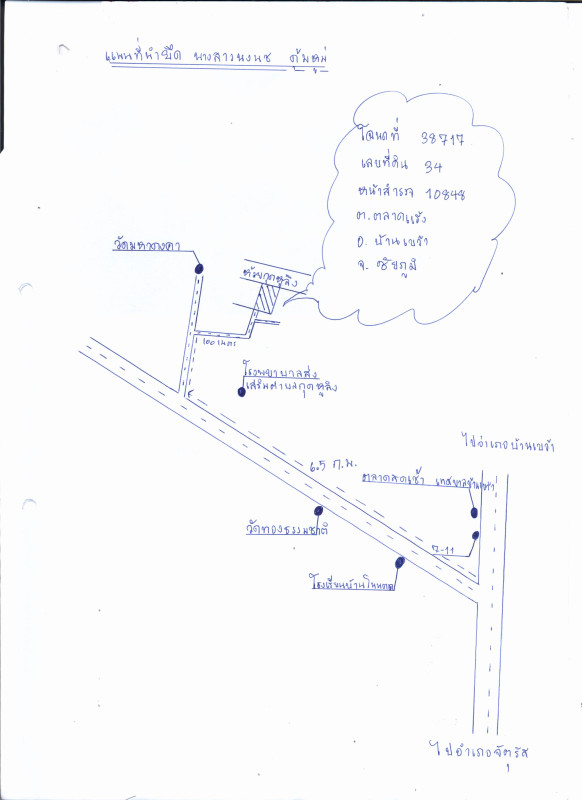 แผนที่นำยึด นางสาวนงนุช ตุ้มหมู่
โฉนดที่ 38717
เลขที่ดิน 34
หน้าสำรวจ 10848
ต.ตลาดแร้ง
อ. บ้านเขว้า
จ. ชัยภูมิ
ห้วยกุดหูลิง
100 เมตร
โรงพยาบาลส่ง
เสริมตำบลกุดหูลิง
ไปอำเภอบ้านเขว้า
6.5 ก.ม.
ตลาดสดเช้า เทศบาลบ้านเขว้า
วัดทองธรรมชาติ
7-11
ไปอำเภอจัตุรัส